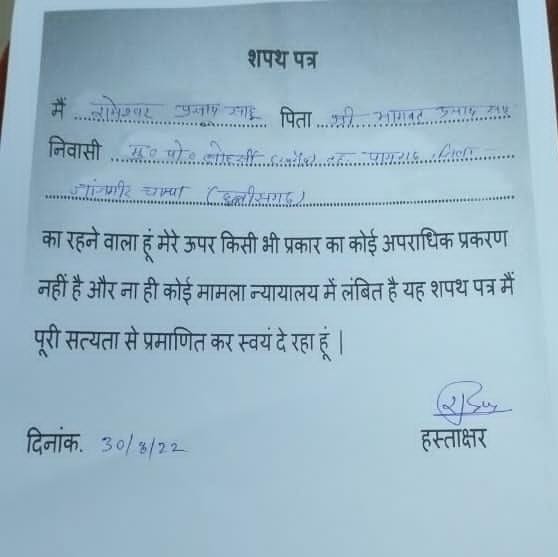 शपथ पत्र
मैं रामेश्वर प्रसाद साहू पिता श्री भागवत प्रसाद साहू
निवासी मु० पो० तह पामगढ़ जिला
जांजगीर चाम्पा (छत्तीसगढ़)
का रहने वाला हूं मेरे ऊपर किसी भी प्रकार का कोई अपराधिक प्रकरण
नहीं है और ना ही कोई मामला न्यायालय में लंबित है यह शपथ पत्र मैं
पूरी सत्यता से प्रमाणित कर स्वयं दे रहा हूं |
दिनांक. 30/8/22
हस्ताक्षर